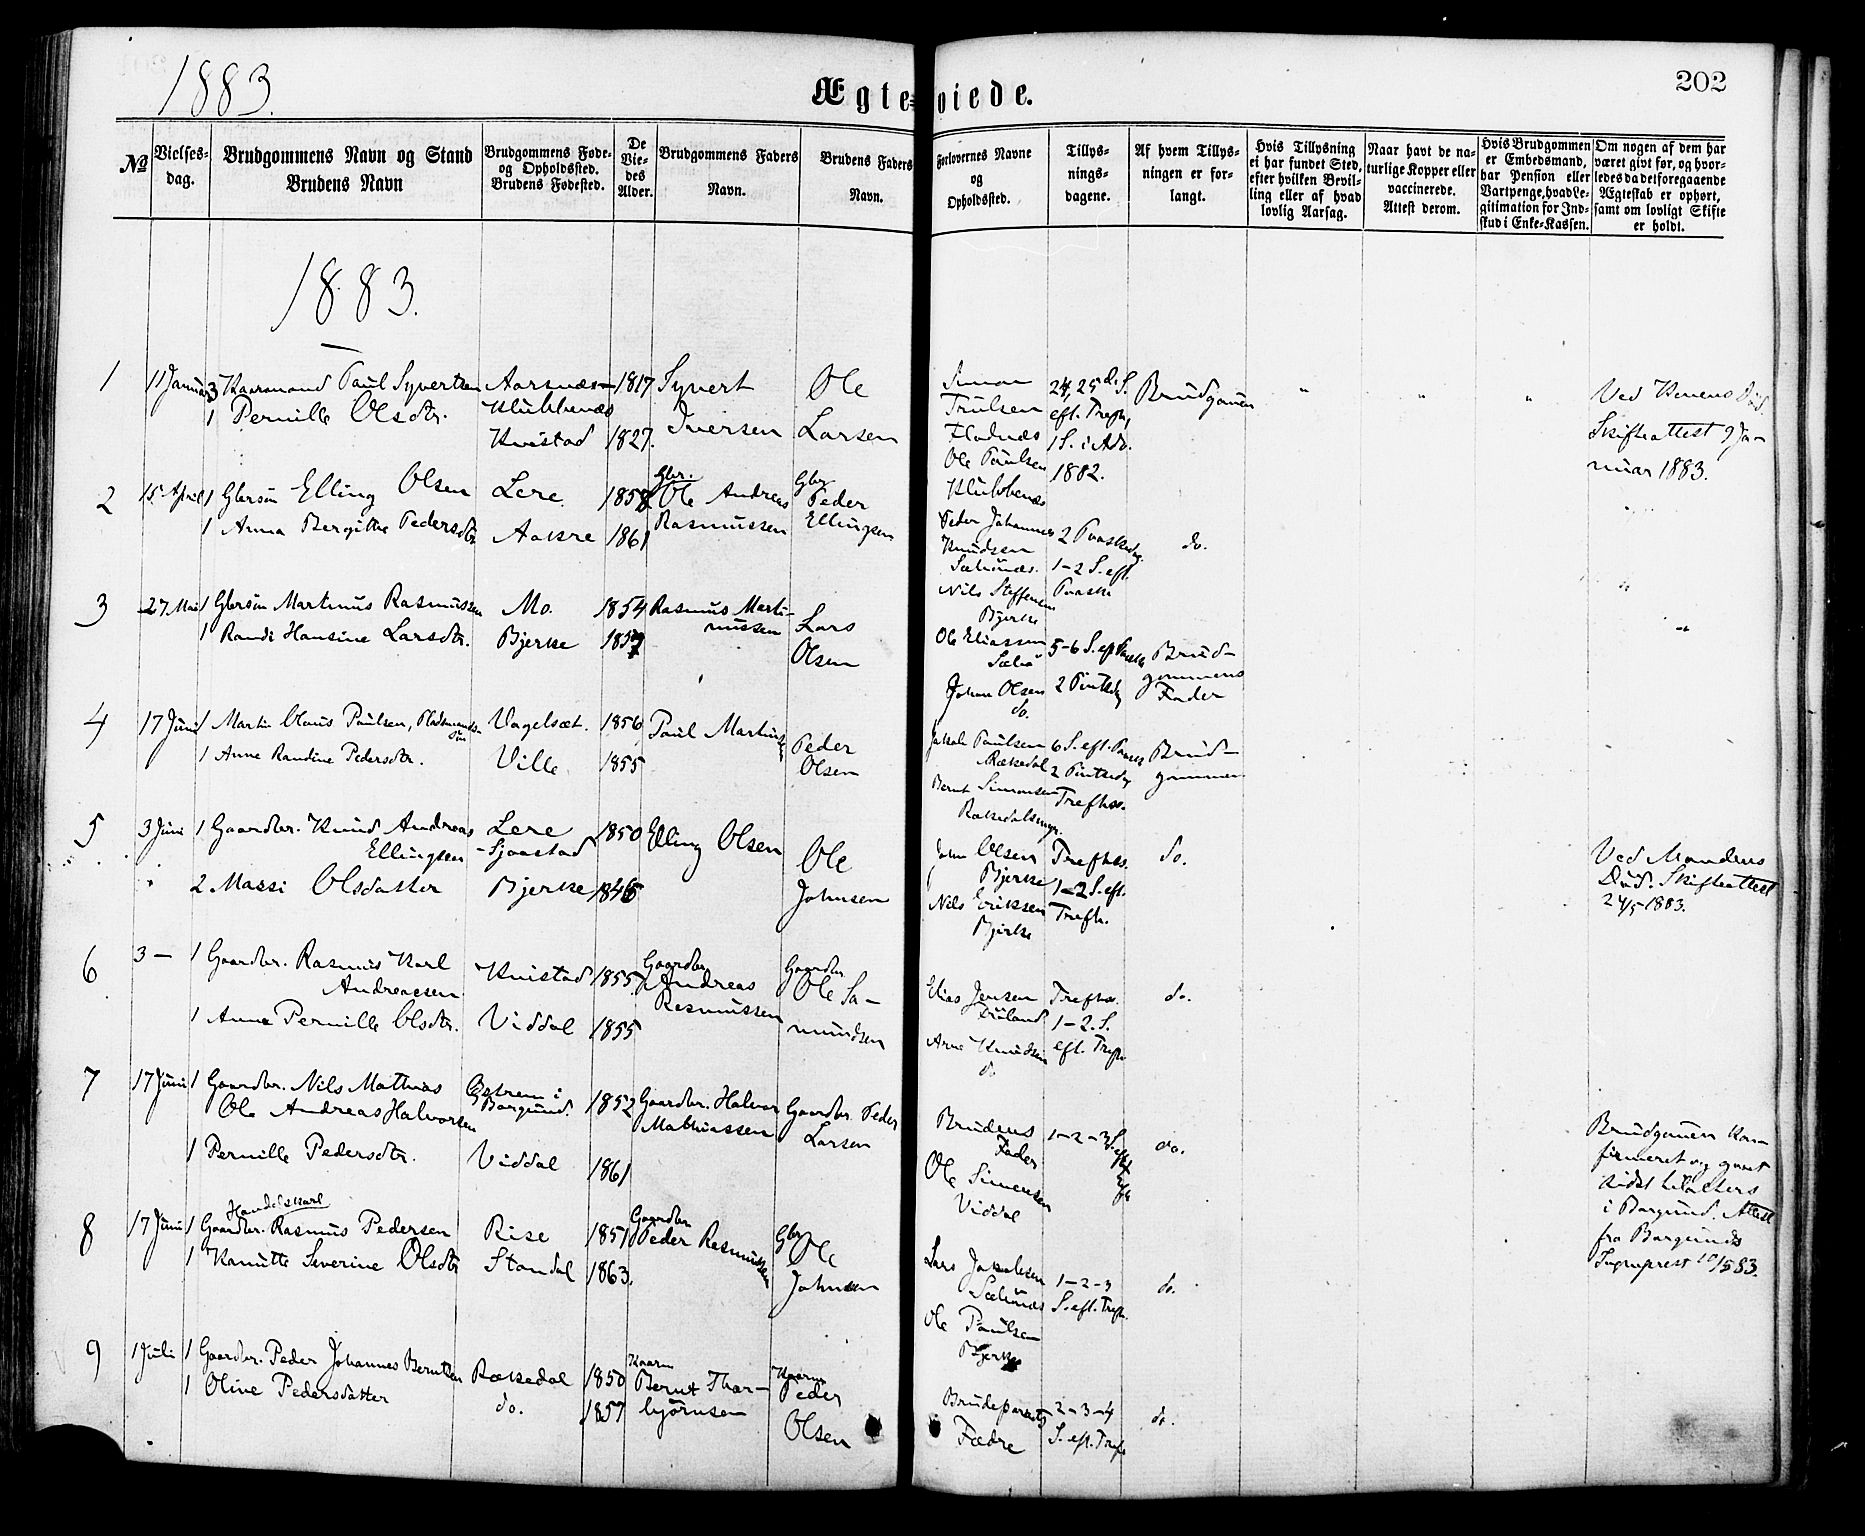 1883.
Ægteviede.
202
№
Vielses-
dag.
Brudgommens Navn og Stand
Brudens Navn
Brudgommens Føde-
og Opholdssted.
Brudens Fødested.
De
Vie-
des
Alder.
Brudgommens Faders
Navn.
Brudens Faders
Navn.
Forlovernes Navne
og
Opholdssted.
Tillys-
nings-
dagene.
Af hvem Tillys-
ningen er for-
langt.
Hvis Tillysning
ei har fundet Sted,
efter hvilken Bevil-
ling eller af hvad
lovlig Aarsag.
Naar havt de na-
turlige Kopper eller
vaccinerede.
Attest derom.
Hvis Brudgommen
er Embedsmand,
har Pension eller
Vartpenge, hvad Le-
gitimation for Ind-
skud i Enke-Kassen.
Om nogen af dem har
været givt før, og hvor-
ledes da det foregaaende
Ægteskab er ophørt,
samt om lovligt Skifte
er holdt.
1883.
1
11 Januar
3 Kaarmand Paul Syvertsen
1 Pernille Olsdtr.
Aarsnæs-
Klubbenæs
Kvistad
1817
1827.
Syvert
Iversen
Ole
Larsen
Simon
Trulsen
Fladnæs
Ole Paulsen
Klubbenæs
24, 25 d. S.
eft. Trefh,
1 S. i Adv.
1882.
Brudgomen
Ved Konens Død.
Skifteattest 9 Ja-
nuar 1883.
2
15 April
1 Gbrsøn Elling Olsen
1 Anna Bergitte Pedersdtr.
Lere
Aakre
1858
1861
Gbr.
Ole Andreas
Rasmussen
Gbr
Peder
Ellingsen
Peder Johannes
Knudsen
Sæbønæs.
Nils Steffensen
Bjerke
2 Paaskedag
1-2 S. eft.
Paaske
do.
3
27 Mai
1 Gbrsøn Martinus Rasmussen
1 Randi Hansine Larsdtr.
Mo.
Bjerke
1854
1857
Rasmus Marti-
nussen
Lars
Olsen
Ole Eliassen
Sæbø
Johan Olsen
do.
5-6 S. eft Paaske
2 Pintsedag
Brud-
gommens
Fader
4
17 Juni
1 Martin Claus Paulsen, Pladsmands-
søn
1 Anne Randine Pedersdtr.
Vagelsæt.
Ville
1856
1855
Paul Martinus
Peder
Olsen
Jakob Paulsen
Rækedal
Bernt Simonsen
6 S. eft. Paaske
2 Pintsedag
Trefhs.
Brud-
gommen
5
3 Juni
1 Gaardbr. Knud Andreas
Ellingsen
2 Massi Olsdatter
Lere
-Sjaastad
Bjerke
1850
1846
Elling Olsen
Ole
Johnsen
John Olsen
Bjerke
Nils Eriksen
Bjerke
Trefhs.
1-2 S. eft.
Trefh.
do.
Ved Mandens
Død. Skifteattest
24/5 1883.
6
3 —
1 Gaardbr. Rasmus Karl
Andreassen
1 Anne Pernille Olsdtr.
Kvistad
Viddal
1855
1855
Gaardbr
Andreas
Rasmussen
Gaardbr
Ole Sa-
mundsen
Elias Jensen
Arne Knudsen
do
Trefhs.
1-2. S.
eft. Trefh.
do.
7
17 Juni
1 Gaardbr. Nils Mathias
Ole Andreas Halvorsen
1 Pernille Pedersdtr.
Østrem i
Borgund.
Viddal
1852
1861
Gaardbr. Halvor
Mathiassen
Gaardbr. Peder
Larsen
Brudens
Fader
Ole Simensen
Viddal
1-2-3 S. eft
Trefh
do.
Brudgomen Kon-
firmeret og gaaet
sidst til Alters
i Borgund. Attest
fra Borgunds
Sogneprest 10/5 83.
8
17 Juni
Handelskarl
1 Gaardbr. Rasmus Pedersen
1 Kanutte Severine Olsdtr
Rise
Standal
1851
1863.
Gaardbr
Peder Rasmussen
Gbr
Ole
Johnsen
Lars Jakobsen
Sæbønæs
Ole Paulsen
Bjerke
1-2-3
S. eft. Trefh.
do.
9
1 Juli
1 Gaardbr. Peder Johannes Berntsen
1 Oline Pedersdatter
Rækedal
do.
1850
1857
Kaarm
Bernt Thor-
bjørnsen
Kaarm
Peder
Olsen
Brudeparrets
Fædre
2-3-4
S. eft. Trefh
do.